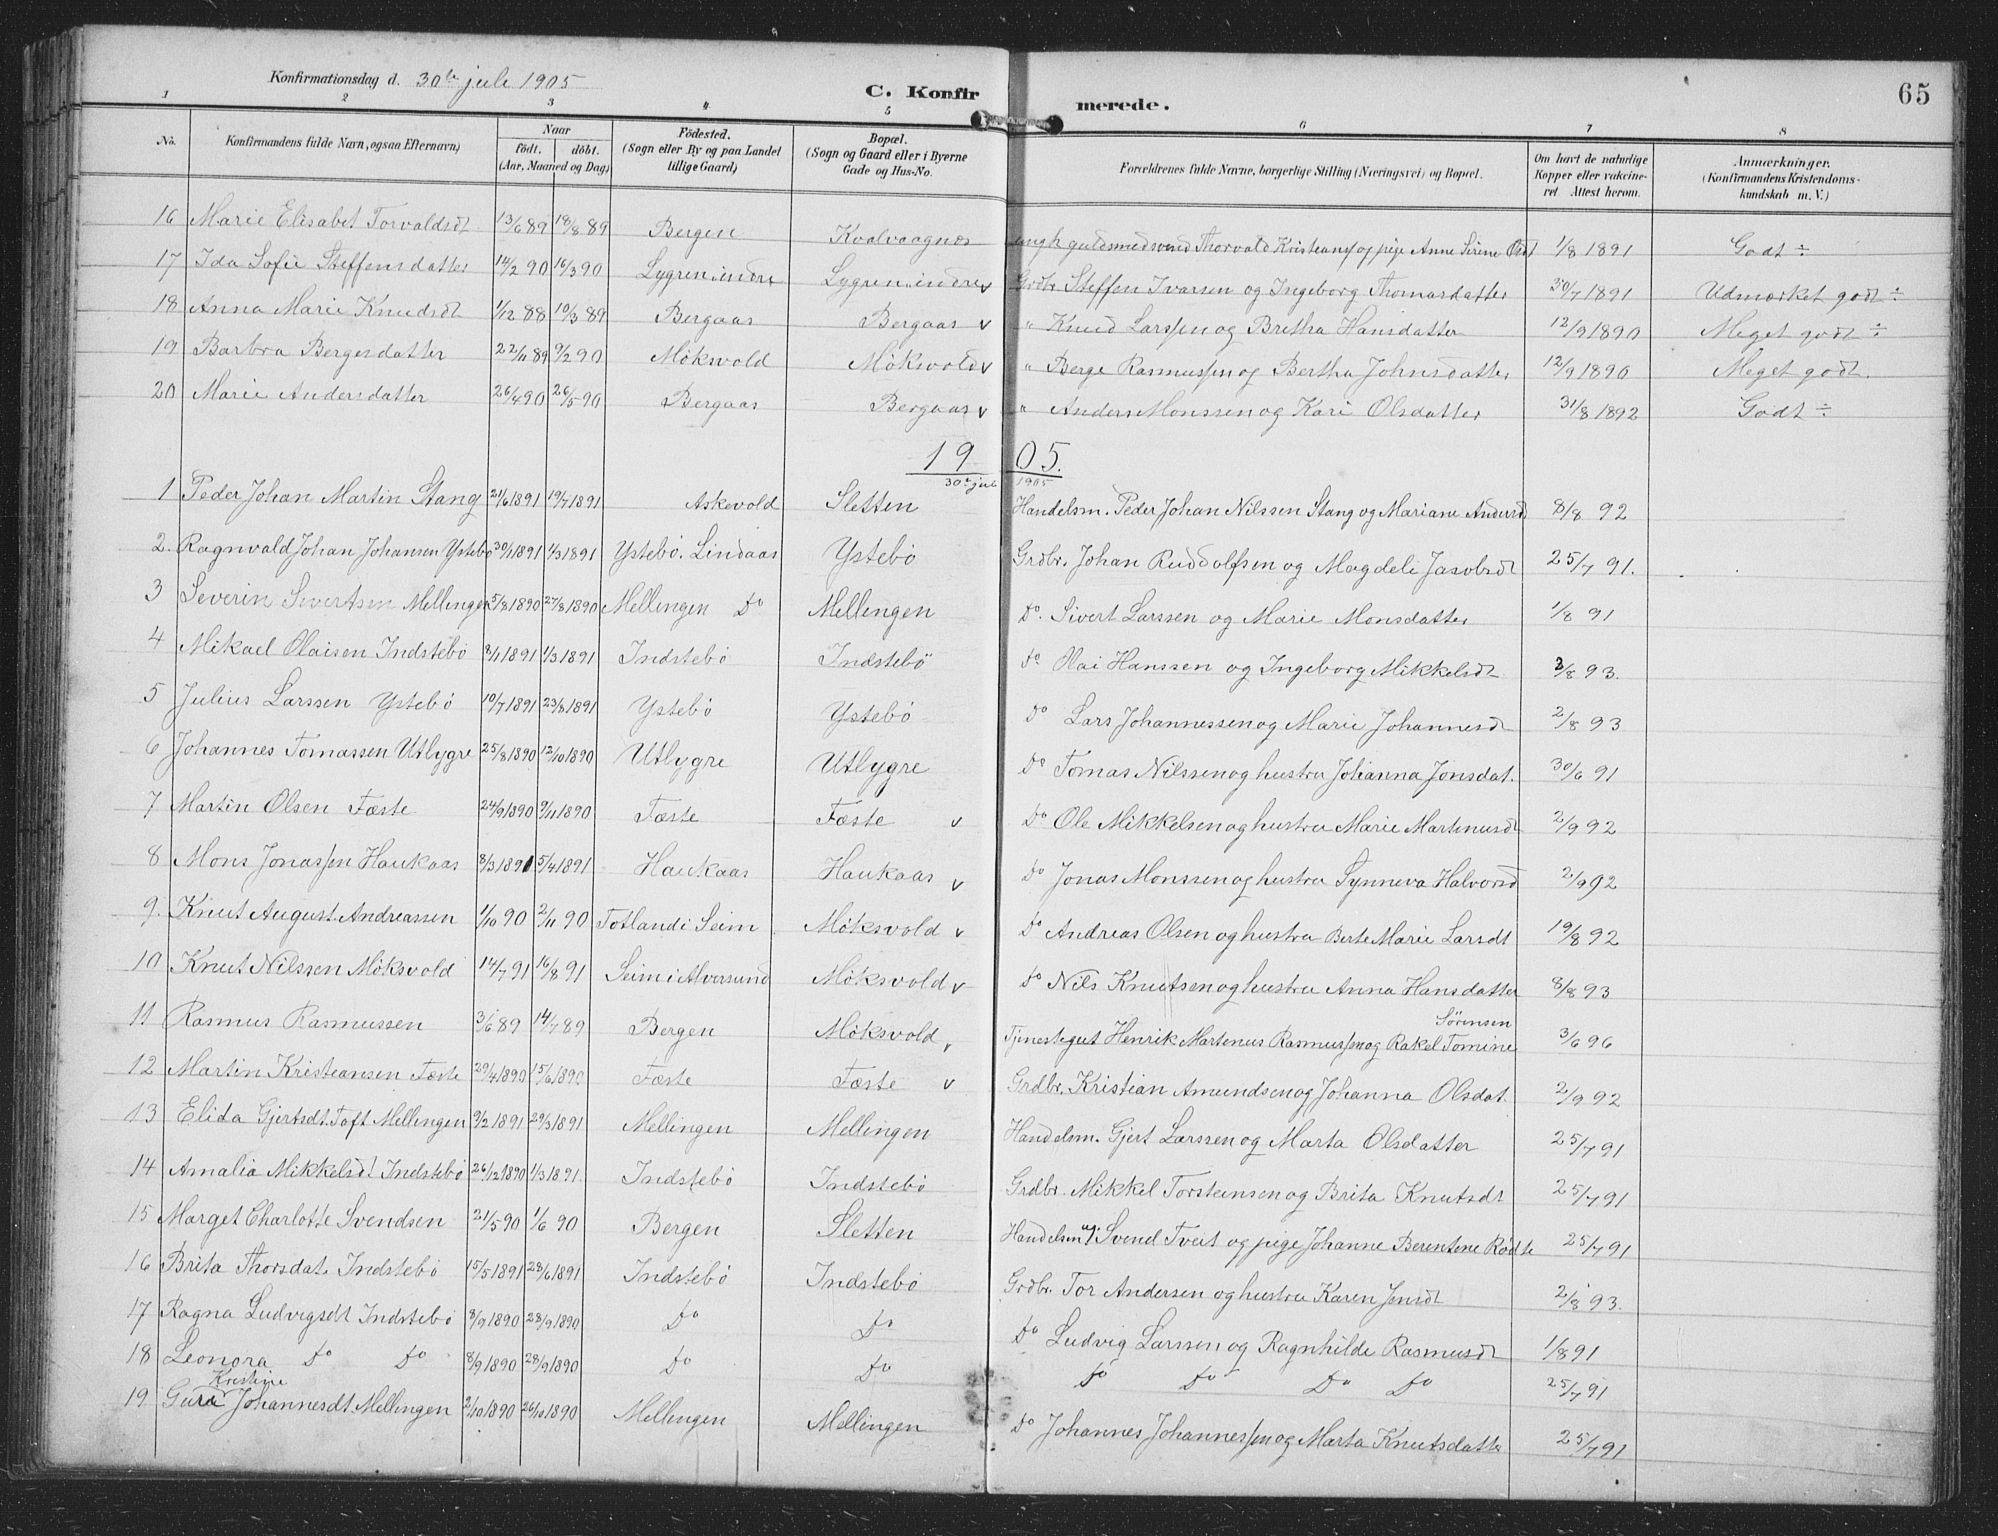 Konfirmationsdag d. 30te juli 1905
C. Konfirmerede.
65
1 2 3 4 5 6 7 8
No. Konfirmandens fulde Navn, ogsaa Efternavn) Naar födt. döbt. (Aar, Maaned og Dag) Födested. (Sogn eller By og paa Landet tillige Gaard) Bopæl. (Sogn og Gaard eller i Byerne Gade og Hus-No. Forældrenes fulde Navne, borgerlige Stilling (Næringsvei) og Bopæl. Om havt de naturlige Kopper eller vakcineret Attest herom. Anmærkninger. (Konfirmandens Kristendomskundskab m. V.)
16 Marie Elisabet Torvaldsdt 13/6 89 18/8 89 Bergen Kvalvaagnes ungk guldsmedsvend Thorvald Kristians og pige Anne Serine Olsdt 1/8 1891 Godt ÷
17 Ida Sofie Steffensdatter 14/2 90 16/3 90 Lygren indre Lygren indre v Grdbr. Steffen Ivarsen og Ingeborg Thomasdatter 30/7 1891 Udmerket godt ÷
18 Anna Marie Knudsdt 1/12 88 10/3 89 Bergaas Bergaas v " Knud Larssen og Britha Hansdatter 12/9 1890 Meget godt ÷
19 Barbra Bergesdatter 22/11 89 9/2 90 Möksvold Möksvold v " Berge Rasmussen og Bertha Johnsdatter 12/9 1890 Meget godt.
20 Marie Andersdatter 26/4 90 26/5 90 Bergaas Bergaas v " Anders Monssen og Kari Olsdatter 31/8 1892 Godt ÷
1905.
30te juli 1905
1 Peder Johan Martin Stang 21/6 1891 19/7 1891 Askevold Sletten Handelsm. Peder Johan Nilssen Stang og Mariane Andersd 8/8 92
2. Ragnvald Johan Johansen Ystebö 30/1 1891 1/3 1891 Ystebö. Lindaas Ystebö Grdbr. Johan Ruddolfsen og Magdeli Jacobsdt 25/7 91.
3 Severin Sivertsen Mellingen 5/8 1890 27/8 1890 Mellingen Do Mellingen Do. Sivert Larssen og Marie Monsdatter 1/8 91
4 Mikael Olaisen Indstebö 3/1 1891 1/3 1891 Indstebö Indstebö do Olai Hanssen og Ingeborg Mikkelsdt 2/8 93.
5 Julius Larssen Ystebö 10/7 1891 23/8 1891 Ystebö Ystebö Do Lars Johannessen og Marie Johannesd 2/8 93
6 Johannes Tomassen Utlygre 25/8 1890 12/10 1890 Utlygre Utlygre Do Tomas Nilssen og hustru Johanna Jonsdat. 30/6 91
7 Martin Olsen Fæste 24/9 1890 9/11 1890 Fæste Fæste v Do Ole Mikkelsen og hustru Marie Martinusdt 2/9 92
8 Mons Jonassen Haukaas 8/3 1891 5/4 1891 Haukaas Haukaas v Do Jonas Monssen og hustru Synneva Halvorsd 2/9 92
9. Knut August Andreassen 1/10 90 2/11 90 Totland i Seim Möksvold v Do Andreas Olsen og hustru Berte Marie Larsdt 19/8 92
10 Knut Nilssen Möksvold 14/7 91 16/8 91 Seim i Alversund Möksvold v do Nils Knutsen og hustru Anna Hansdatter 8/8 93
11 Rasmus Rasmussen 3/6 89 14/7 89 Bergen Möksvold v Tjenestegut Henrik Martinus Rasmussen og Rakel Tomine Sørensen 3/6 96
12 Martin Kristiansen Fæste 29/4 1890 15/6 1890 Fæste Fæste v Grdbr. Kristian Amundsen og Johanna Olsdat. 2/9 92
13 Elida Gjertsdt. Toft Mellingen 9/2 1891 29/3 1891 Mellingen Mellingen Handelsm. Gjert Larssen og Marta Olsdatter 25/7 91
14 Amalia Mikkelsdt Indstebö 26/12 1890 1/3 1891. Indstebö Indstebö Grdbr. Mikkel Torsteinsen og Brita Knutsdt 25/7 91
15 Marget Charlotte Svendsen 21/5 90 1/6 90 Bergen Sletten Handelsm Svend Tveit og pige Johanne Berentene Rødte 25/7 91
16 Brita Thorsdat. Indstebö 15/5 1891 28/6 1891 Indstebö Indstebö Grdbr. Tor Andersen og hustru Karen Jensdt 2/8 93.
17 Ragna Ludvigsdt Indstebö 8/9 1890 28/9 1890 Do Do Do Ludvig Larssen og Ragnhilde Rasmusdt 1/8 91
18 Leonora Do Do 8/9 1890 28/9 1890 Do Do Do Do Do Do 25/7 91
19 Guri Kristine Johannesdt. Mellingen 2/10 1890 26/10 1890 Mellingen Mellingen Do Johannes Johannessen og Marta Knutsdatter 25/7 91